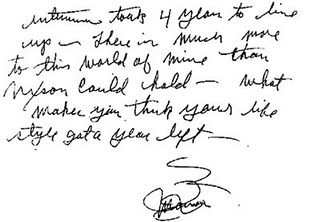 took 4 years to line
up — there is much more
to this world of mine than
Nixon could hold — what
makes you think your life
style got a year left —